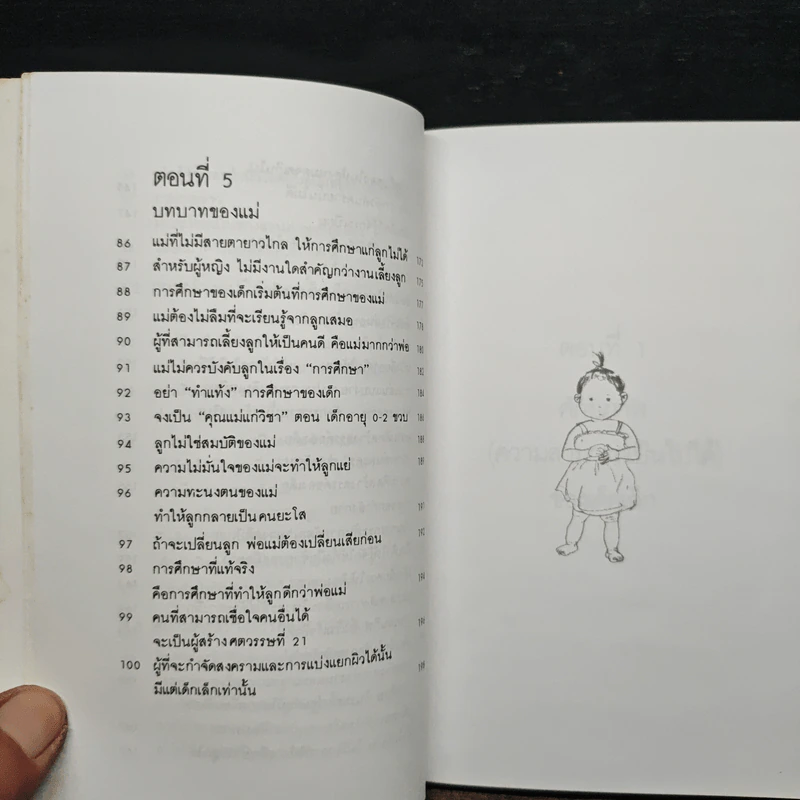 ตอนที่ 5
บทบาทของแม่
86 แม่ที่ไม่มีสายตายาวไกล ให้การศึกษาแก่ลูกไม่ได้ 173
87 สำหรับผู้หญิง ไม่มีงานใดสำคัญกว่างานเลี้ยงลูก 175
88 การศึกษาของเด็กเริ่มต้นที่การศึกษาของแม่ 177
89 แม่ต้องไม่ลืมที่จะเรียนรู้จากลูกเสมอ 178
90 ผู้ที่สามารถเลี้ยงลูกให้เป็นคนดี คือแม่มากกว่าพ่อ 180
91 แม่ไม่ควรบังคับลูกในเรื่อง “การศึกษา” 182
92 อย่า “ทำแท้ง” การศึกษาของเด็ก 184
93 จงเป็น “คุณแม่แก้วิชา” ตอน เด็กอายุ 0-2 ขวบ 186
94 ลูกไม่ใช่สมบัติของแม่ 188
95 ความไม่มั่นใจของแม่จะทำให้ลูกแย่ 189
96 ความทะนงตนของแม่
ทำให้ลูกกลายเป็นคนยะโส 191
97 ถ้าจะเปลี่ยนลูก พ่อแม่ต้องเปลี่ยนเสียก่อน 192
98 การศึกษาที่แท้จริง
คือการศึกษาที่ทำให้ลูกดีกว่าพ่อแม่ 194
99 คนที่สามารถเชื่อใจคนอื่นได้
จะเป็นผู้สร้างศตวรรษที่ 21
100 ผู้ที่จะกำจัดสงครามและการแบ่งแยกผิวได้นั้น
มีแต่เด็กเล็กเท่านั้น